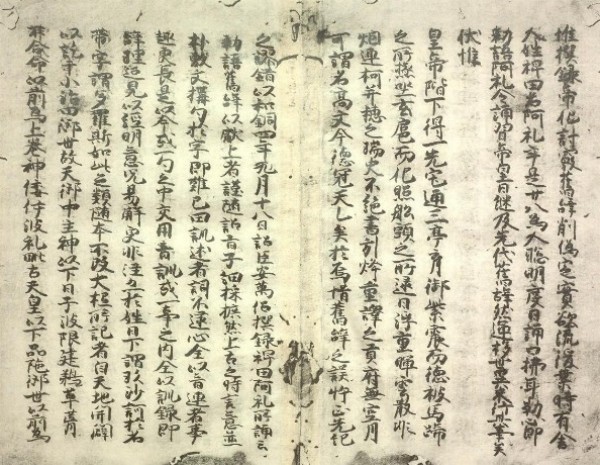 惟撰録帝紀討覈舊辞削偽定實欲流後葉時有舍
人姓稗田名阿礼年是廿八為人聡明度目誦口拂耳勒心即
勅語阿礼令誦習帝皇日継及先代舊辞然運移世異未行其事矣
伏惟
皇帝陛下得一光宅通三亭育御紫震而徳被馬蹄
之所極坐玄扈而化照船頭之所逮日浮重暉雲散非
烟連柯并穂之瑞史不絶書列烽重譯之貢府無空月
可謂名高文命徳冠天乙矣於焉惜舊辞之誤忤正先紀
之謬錯以和銅四年九月十八日詔臣安萬侶撰録稗田阿礼所誦之
勅語舊辞以獻上者謹随詔旨子細採摭然上古之時言意並
朴敷文構句於字即難已因訓述者詞不逮心全以音連者事
趣更長是以今或一句之中交用音訓或一事之内全以訓録即
辞理叵見以注明意况易解更非注亦於姓日下謂玖沙訶於名
帯字謂多羅斯如此之類随本不改大抵所記者自天地開闢
以訖于小治田御世故天御中主神以下日子波限建鵜草葺
不合命以前為上巻神倭伊波礼毗古天皇以下品陀御世以前為